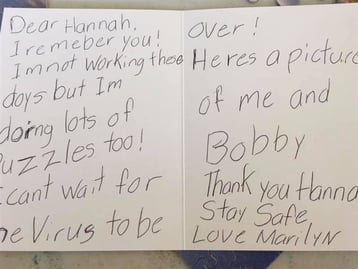 Dear Hannah,
I remeber you!
Im not working these
days but Im
doing lots of
Puzzles too!
I cant wait for
he Virus to be
over!
Heres a picture
of me and
Bobby
Thank you Hanna
Stay Safe
Love Marilyn